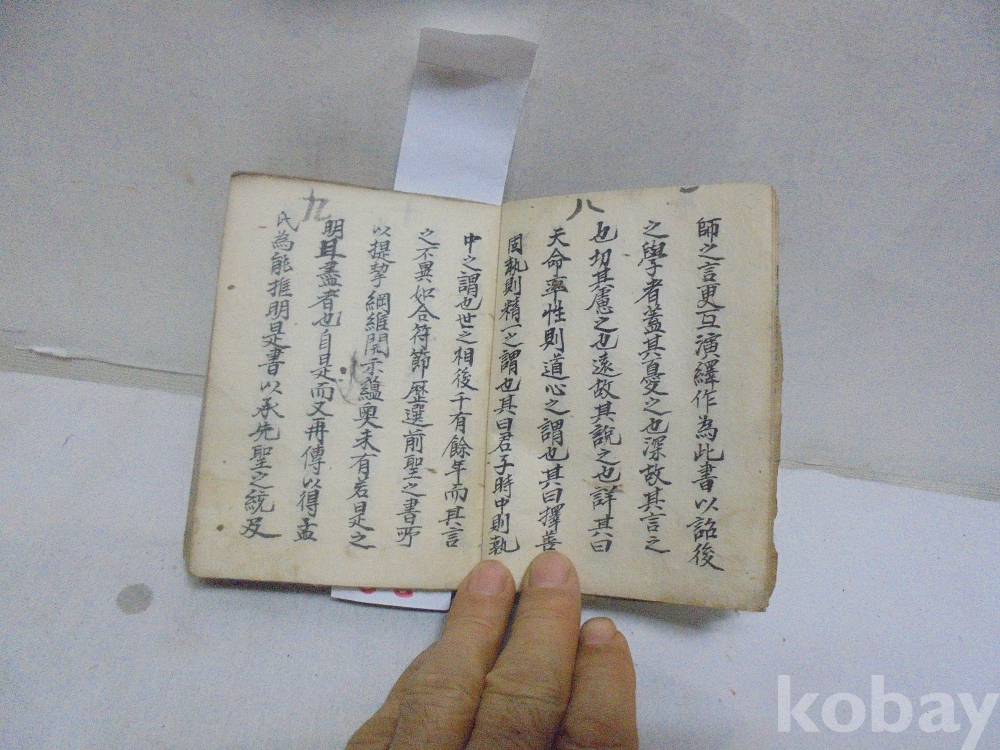 八
師之言更互演繹作為此書以詔後
之學者蓋其憂之也深故其言之
也切其慮之也遠故其說之也詳其曰
天命率性則道心之謂也其曰擇善
固執則精一之謂也其曰君子時中則執
九
中之謂也世之相後千有餘年而其言
之不異如合符節歷選前聖之書所
以提挈綱維開示蘊奧未有若是之
明且盡者也自是而又再傳以得孟
氏為能推明是書以承先聖之統及
kobay